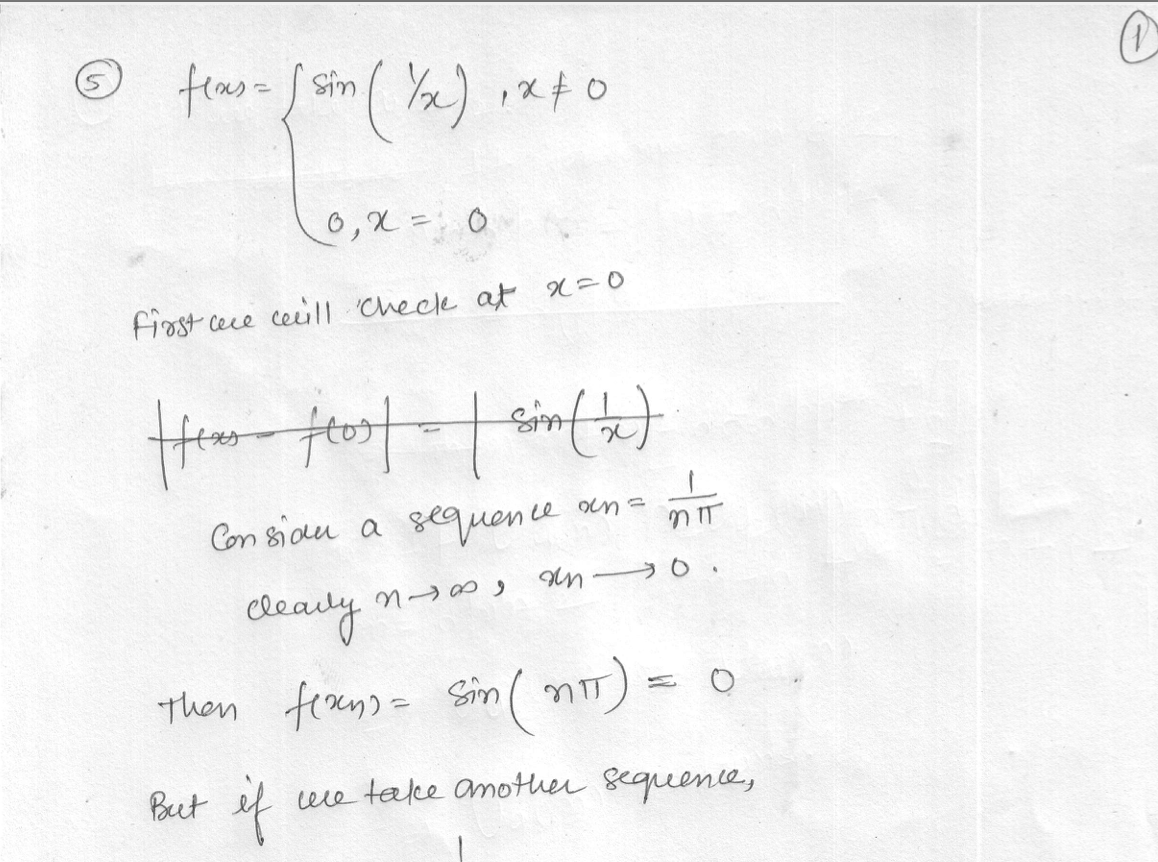 ①
⑤ f(x) = { sin(1/x), x ≠ 0
0, x = 0
First we will check at x = 0
|f(x) - f(0)| = | sin(1/x)
Consider a sequence xn = 1/nπ
clearly n → ∞, xn → 0.
Then f(xn) = sin(nπ) = 0
But if we take another sequence,